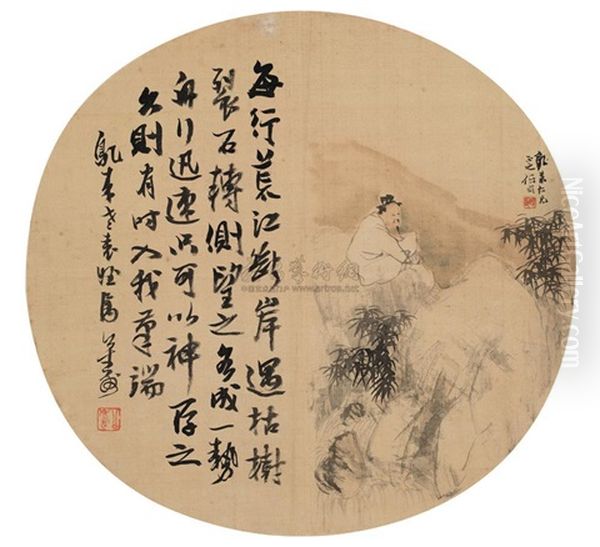 每行荒江斷岸遇枯樹
裂石轉側望之各成一勢
舟行迅速只可以神存之
久則有時入我筆端
仁兄
正之
NiceArtGallery.com